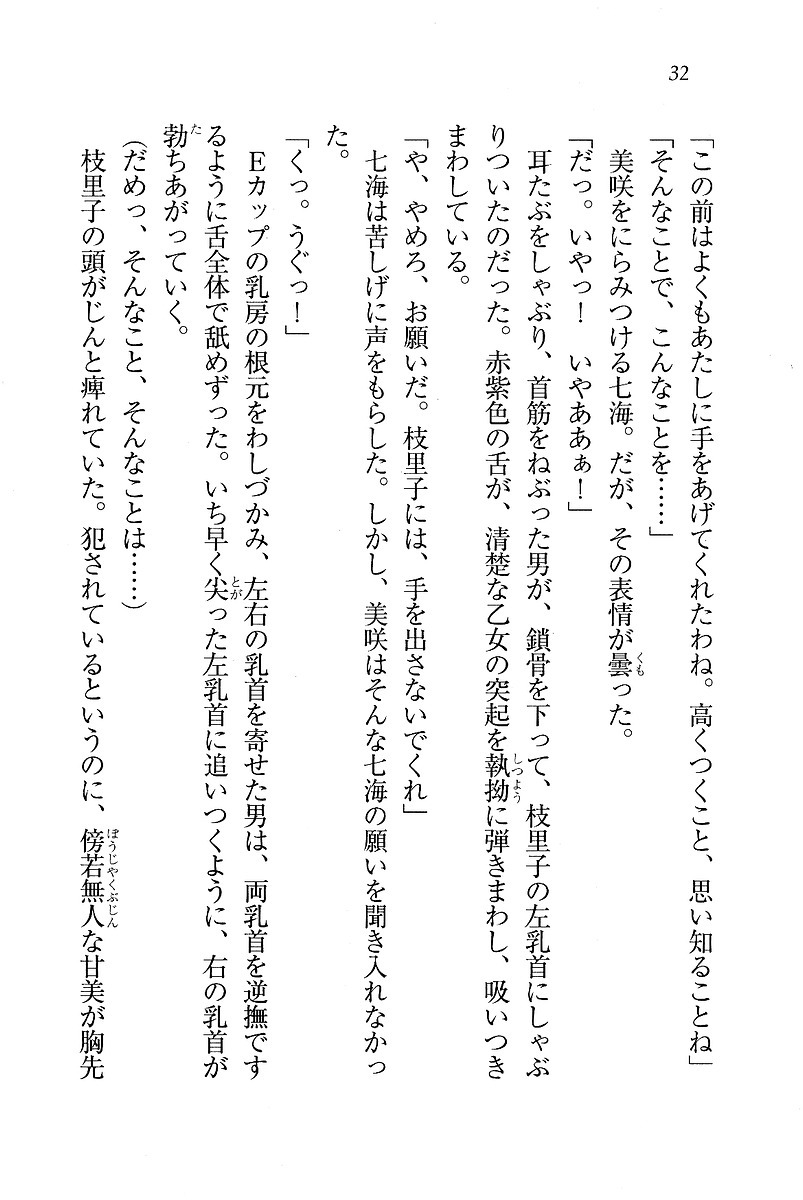 32
「この前はよくもあたしに手をあげてくれたわね。高くつくこと、思い知ることね」
「そんなことで、こんなことを……」
　美咲をにらみつける七海。だが、その表情が曇った。
「だっ。いやっ！　いやああぁ！」
　耳たぶをしゃぶり、首筋をねぶった男が、鎖骨を下って、枝里子の左乳首にしゃぶ
りついたのだった。赤紫色の舌が、清楚な乙女の突起を執拗に弾きまわし、吸いつき
まわしている。
「や、やめろ、お願いだ。枝里子には、手を出さないでくれ」
　七海は苦しげに声をもらした。しかし、美咲はそんな七海の願いを聞き入れなかっ
た。
「くっ。うぐっ！」
　Ｅカップの乳房の根元をわしづかみ、左右の乳首を寄せた男は、両乳首を逆撫です
るように舌全体で舐めずった。いち早く尖った左乳首に追いつくように、右の乳首が
勃ちあがっていく。
（だめっ、そんなこと、そんなことは……）
　枝里子の頭がじんと痺れていた。犯されているというのに、傍若無人な甘美が胸先